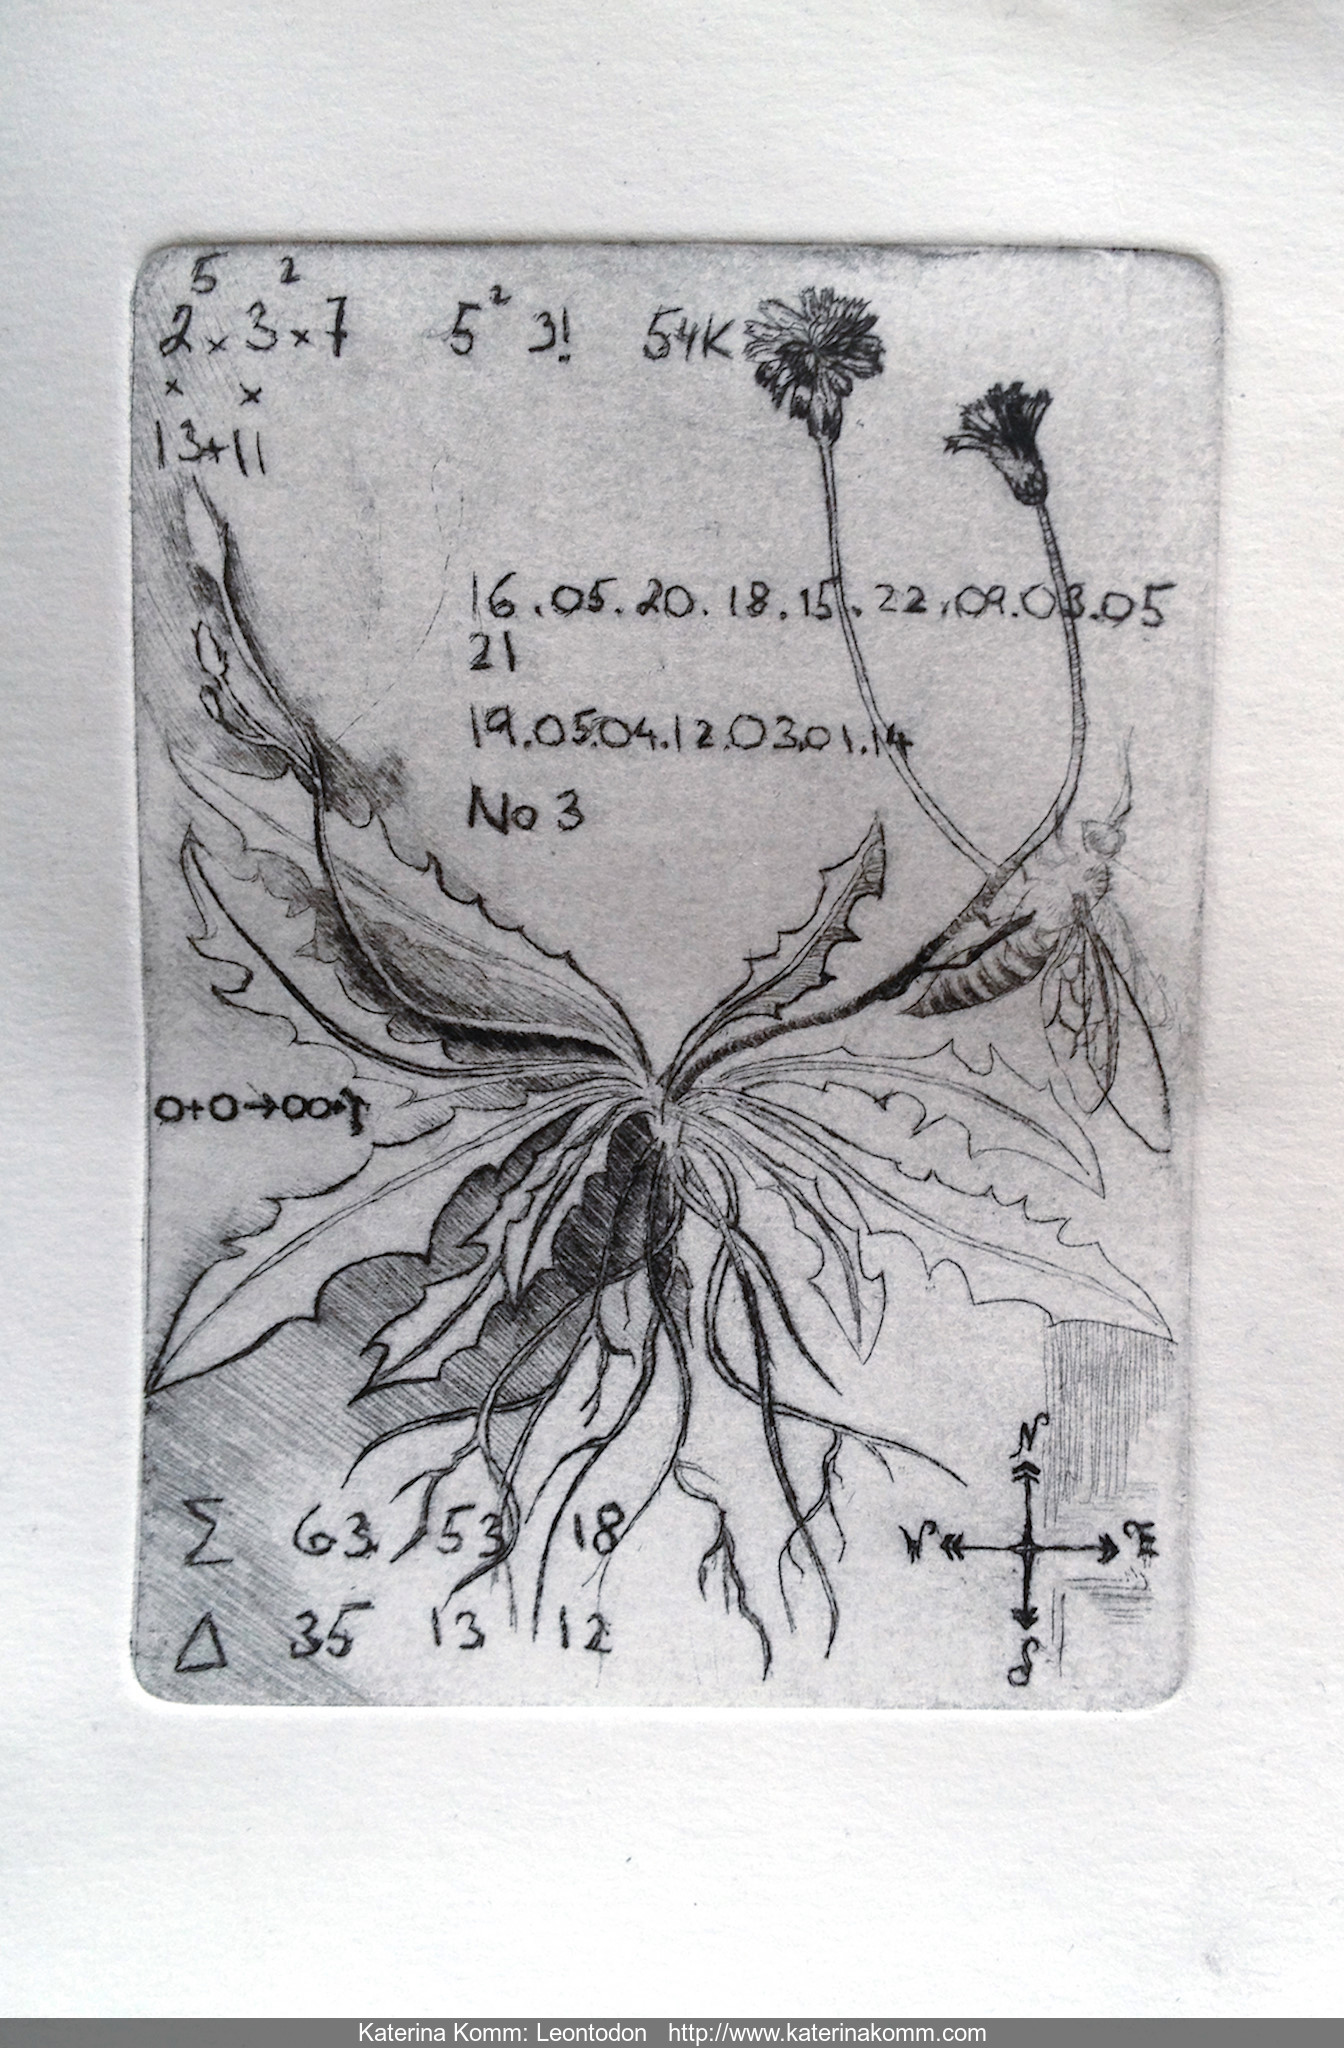 5 2
2 × 3 × 7 5² 3! 54K
× ×
13+11
16.05.20.18.15.22.09.03.05
21
19.05.04.12.03.01.14
No 3
O+O→OO+↑
Σ 63 53 18
Δ 35 13 12
N
W E
S
Katerina Komm: Leontodon http://www.katerinakomm.com